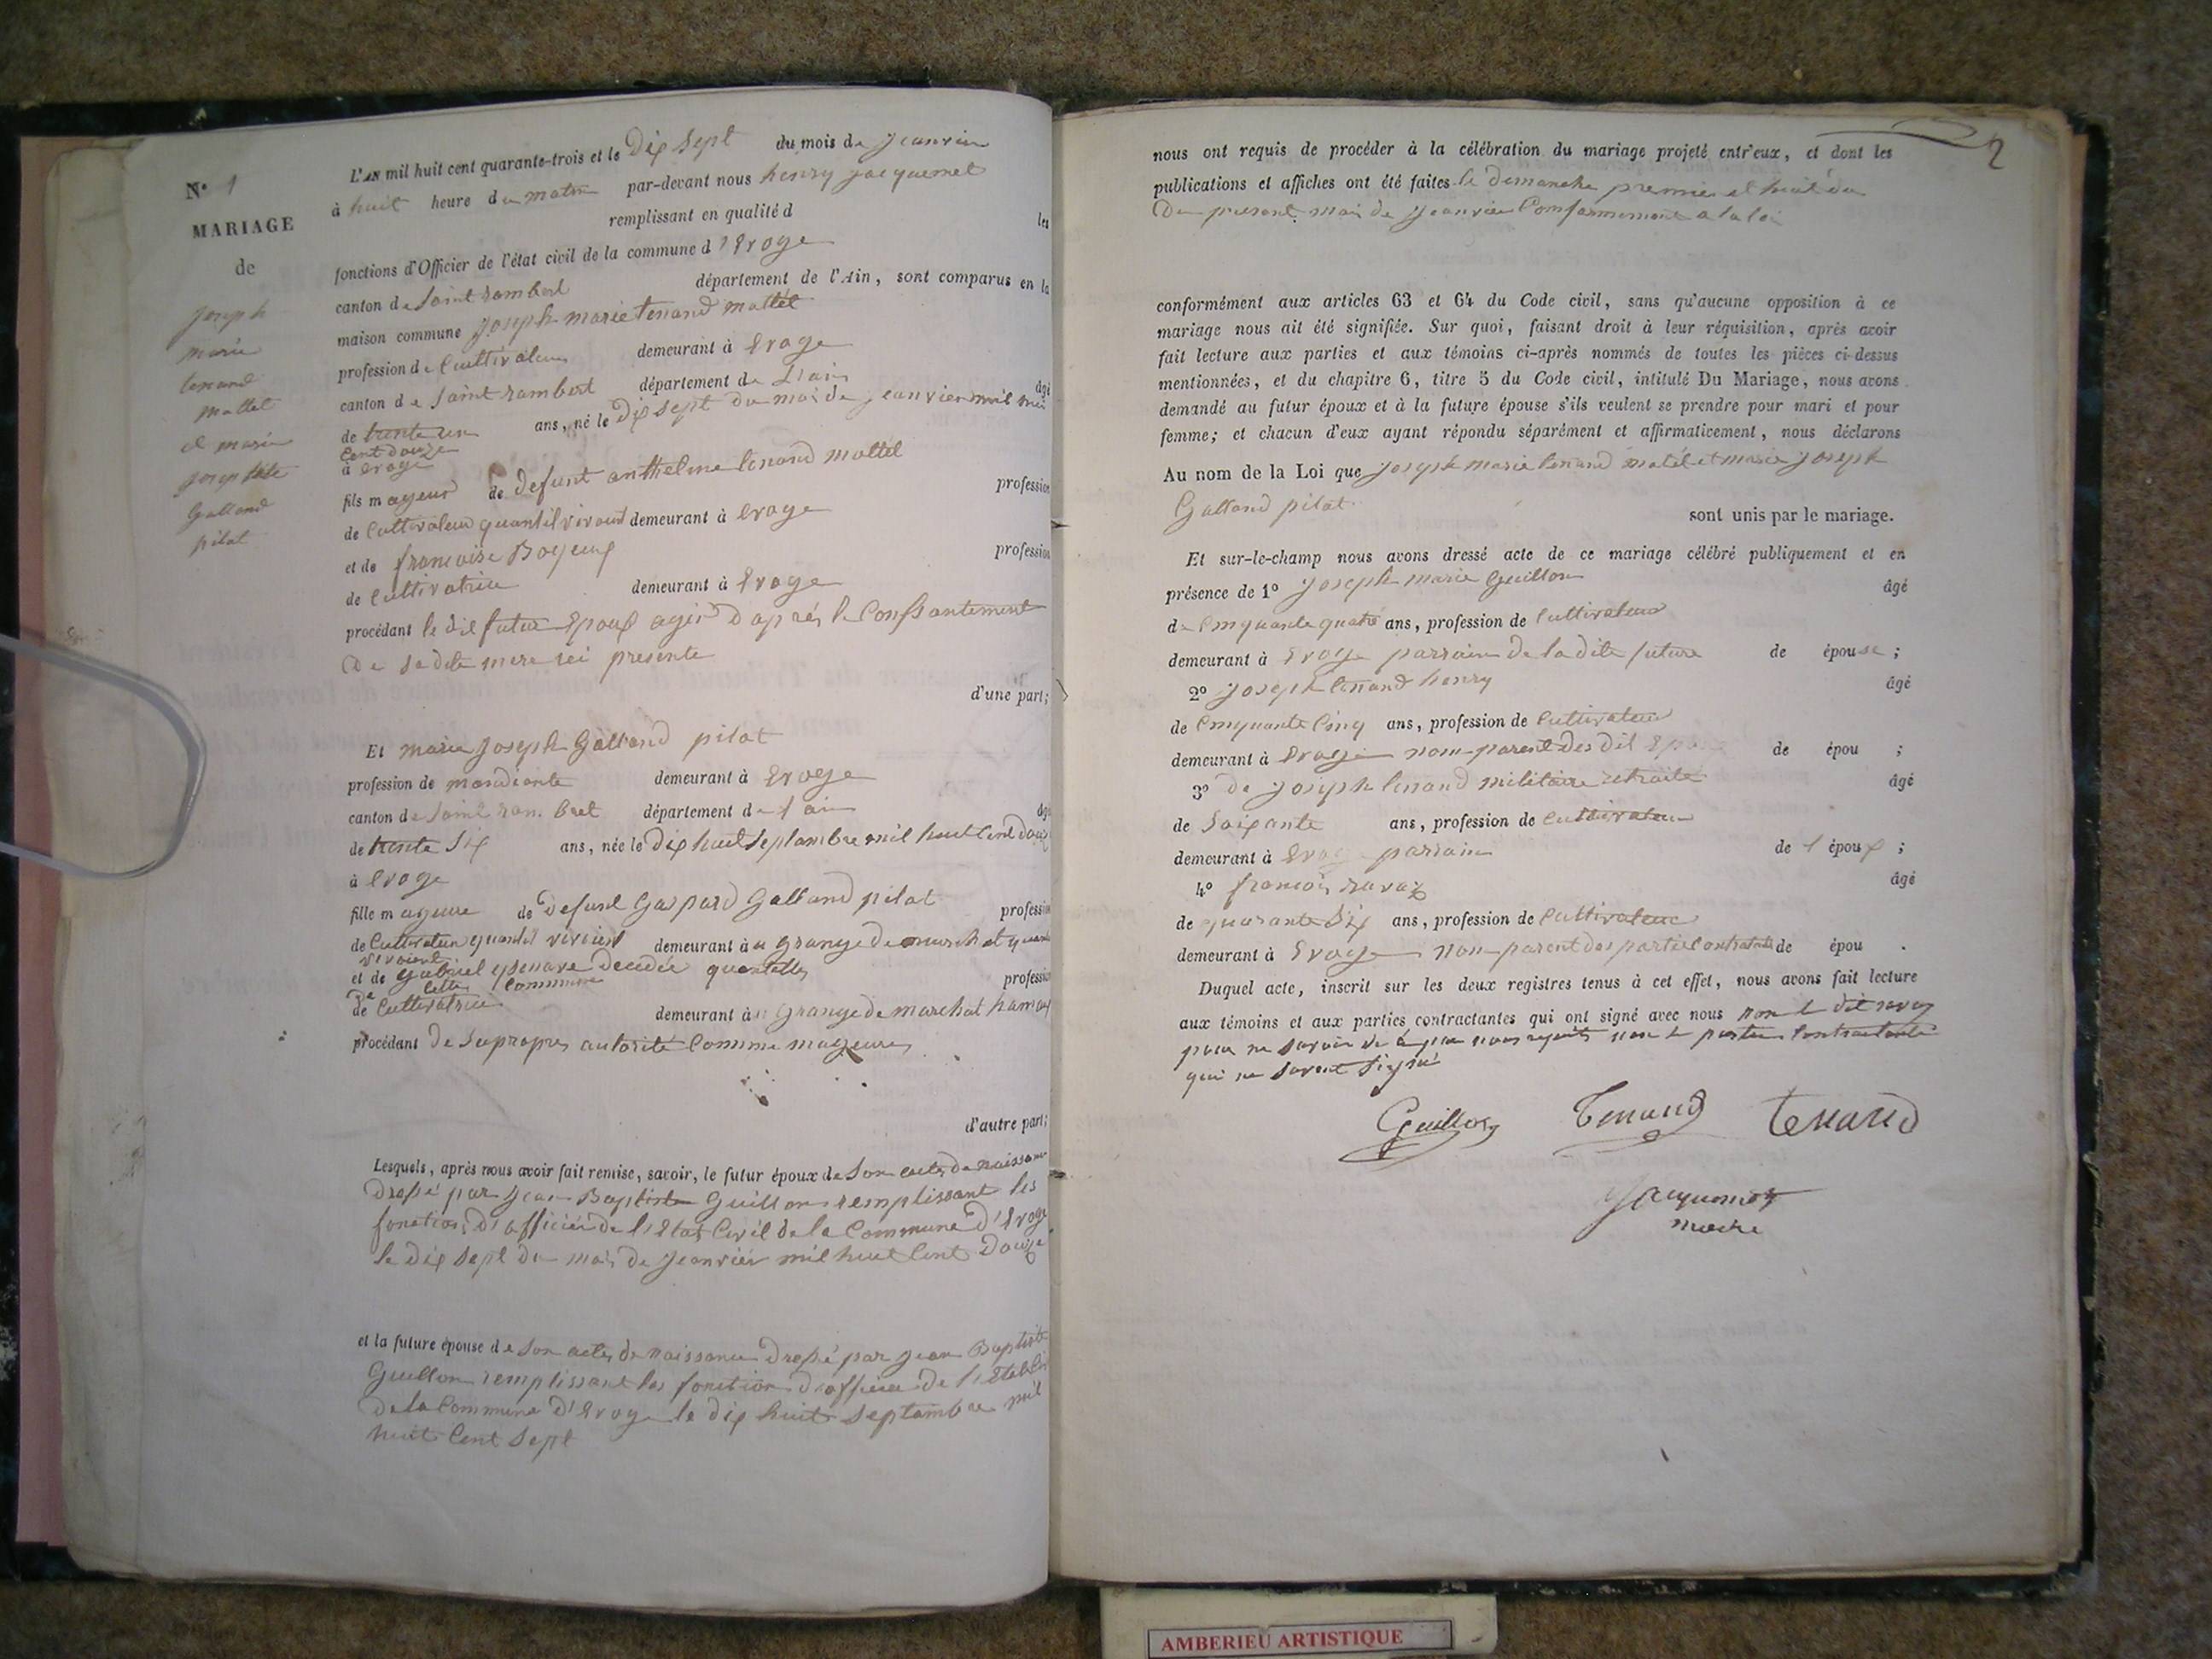 N° 1
MARIAGE
de
joseph
marie
tenand
mattel
et marie
josephte
Galland
pilat
L'AN mil huit cent quarante-trois et le Dix Sept du mois de jeanvier
à huit heure du matin par-devant nous henry jacquemet
remplissant en qualité d les
fonctions d'Officier de l'état civil de la commune d'Evoge
canton de Saint rambert département de l'Ain, sont comparus en la
maison commune joseph marie tenand mattel
profession de Cultivateur demeurant à Evoge
canton de Saint rambert département de L'ain âgé
de trente un ans, né le Dix sept du mois de jeanvier mil huit
Cent douze
à evoge
fils mageur de defunt anthelme tenand mattel profession
de Cultivateur quantil vivait demeurant à Evoge
et de francoise Boyeux profession
de Cultivatrice demeurant à Evoge
procédant le dit futur Epoux agir d'après le Conssantement
De sa dite mere ici presente
d'une part;
Et marie joseph Galland pilat
profession de mandiante demeurant à Evoge
canton de Saint ram bert département de l'ain âgé
de trente Six ans, née le Dix huit Septambre mil huit Cent douze
à Evoge
fille mageure de Defunt Gaspard Galland pilat profession
de Cultivateur quantil vivait demeurant à la grange De marchat quand
vivoient
et de Gabriel ysenave decedée quantelle profession
de cette Commune
de Cultivatrice demeurant à la Grange de marchat hamaux
procédant De Sa propres autorité Comme mageure
d'autre part;
Lesquels, après nous avoir fait remise, savoir, le futur époux de Son acte de naissance
Dressé par jean Baptiste Guillon remplissant les
fonction d'officier de l'Etat Civil de la Commune d'Evoge
le dix Sept du mois de jeanvier mil huit Cent Douze
et la future épouse de Son acte de naissance Dressé par jean Baptiste
Guillon remplissant les fonction d'officier de l'Etat Civil
de la Commune d'Evoge le dix huit Septambre mil
huit Cent Sept
2
nous ont requis de procéder à la célébration du mariage projeté entr'eux, et dont les
publications et affiches ont été faites le Dimanche premier et huit du
Du present mois de jeanvier Conformement a la loi
conformément aux articles 63 et 64 du Code civil, sans qu'aucune opposition à ce
mariage nous ait été signifiée. Sur quoi, faisant droit à leur réquisition, après avoir
fait lecture aux parties et aux témoins ci-après nommés de toutes les pièces ci-dessus
mentionnées, et du chapitre 6, titre 5 du Code civil, intitulé Du Mariage, nous avons
demandé au futur époux et à la future épouse s'ils veulent se prendre pour mari et pour
femme; et chacun d'eux ayant répondu séparément et affirmativement, nous déclarons
Au nom de la Loi que joseph marie tenand matel et marie joseph
Galland pilat sont unis par le mariage.
Et sur-le-champ nous avons dressé acte de ce mariage célébré publiquement et en
présence de 1° joseph marie Guillon âgé
de Cinquante quatre ans, profession de Cultivateur
demeurant à Evoge parrain de la dite future de épouse;
2° joseph tenand henry âgé
de Cinquante Cinq ans, profession de Cultivateur
demeurant à Evoge non parent des dit Epoux de épou ;
3° de joseph tenand militaire retraité âgé
de Soixante ans, profession de Cultivateur
demeurant à Evoge parrain de l époux ;
4° francois ravaz âgé
de quarante Six ans, profession de Cultivateur
demeurant à Evoge non parent des partie Contratants de épou .
Duquel acte, inscrit sur les deux registres tenus à cet effet, nous avons fait lecture
aux témoins et aux parties contractantes qui ont signé avec nous non le dit ravaz
pour ne savoir de ce par nous requis non le parties Contractante
qui ne Savent Signé
Guillon Tenand tenand
Jacquemet
maire
AMBERIEU ARTISTIQUE